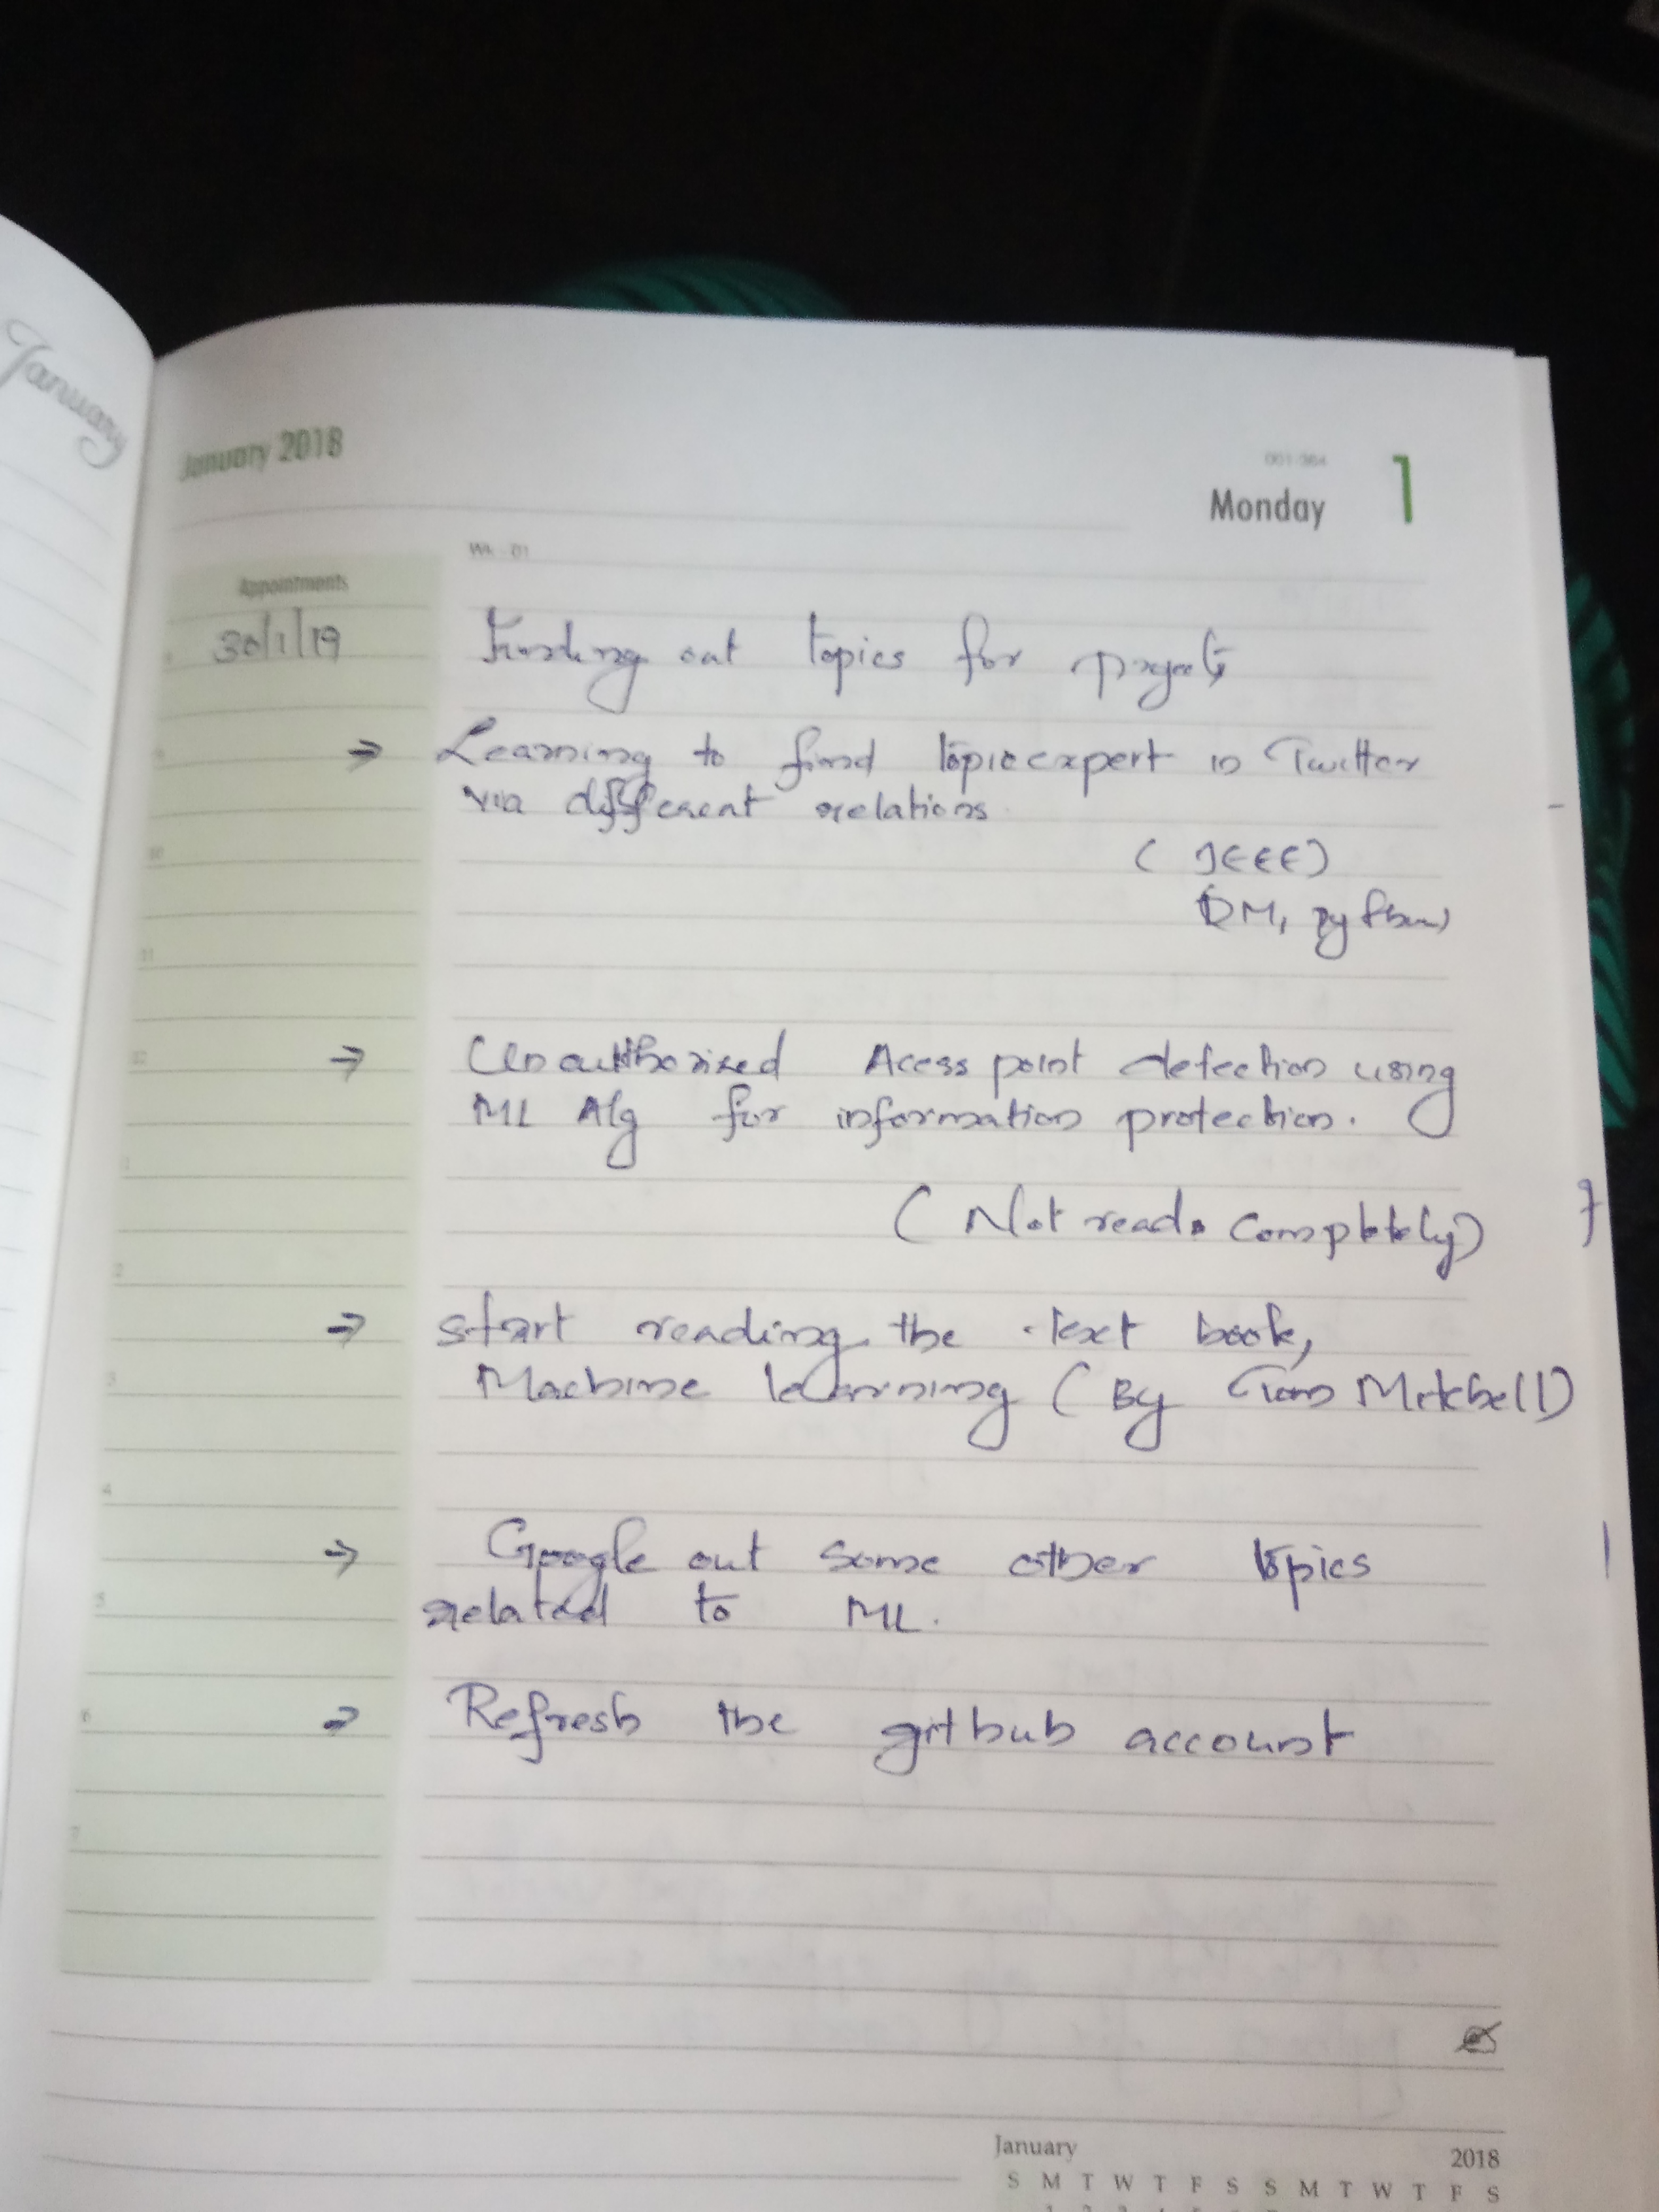 January
January 2018
001-364
Monday 1
Wk - 01
Appointments
30/1/19 Finding out topics for projects
→ Learning to find topic expert in Twitter
via different relations.
( IEEE)
DM, python
→ Unauthorized Acess point detection using
ML Alg for information protection.
( Not read completely)
→ start reading the text book,
Machine learning ( By Tom Mitchell)
→ Google out some other topics
related to ML.
→ Refresh the github account
January 2018
S M T W T F S S M T W T F S